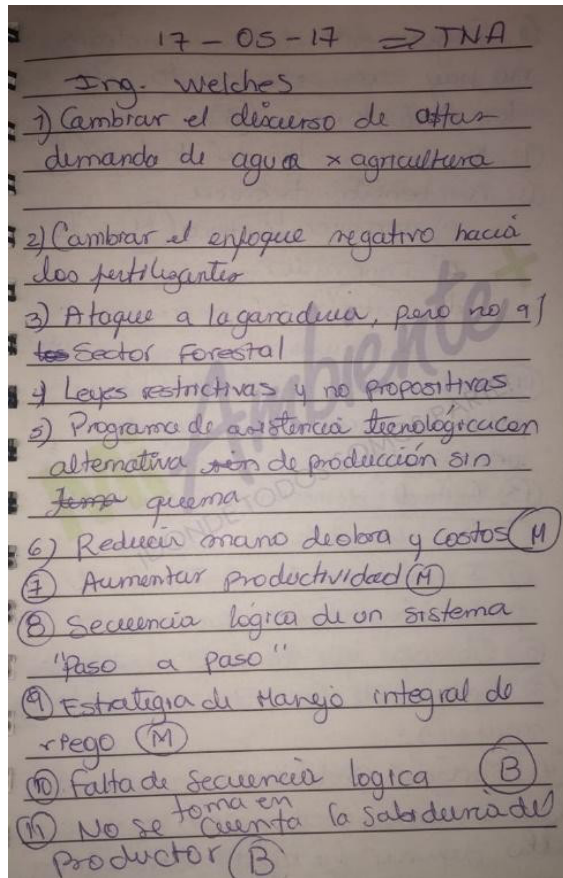 17-05-17 => TNA
Ing. Welches
1) Cambiar el discurso de altas
demanda de agua x agricultura
2) Cambiar el enfoque negativo hacia
los fertilizantes
3) Ataque a la ganaderia, pero no al
Sector Forestal
4) Leyes restrictivas y no propositivas
5) Programa de asistencia tecnológica con
alternativa de producción sin
quema
6) Reducir mano de obra y costos (M)
7) Aumentar productividad (M)
8) Secuencia lógica de un sistema
"Paso a paso"
9) Estrategia de Manejo integral de
riego (M)
10) Falta de Secuencia logica (B)
11) No se toma en cuenta la sabiduria del
productor (B)
Ambiente+
DONDE TODOS SOMOS PARTE